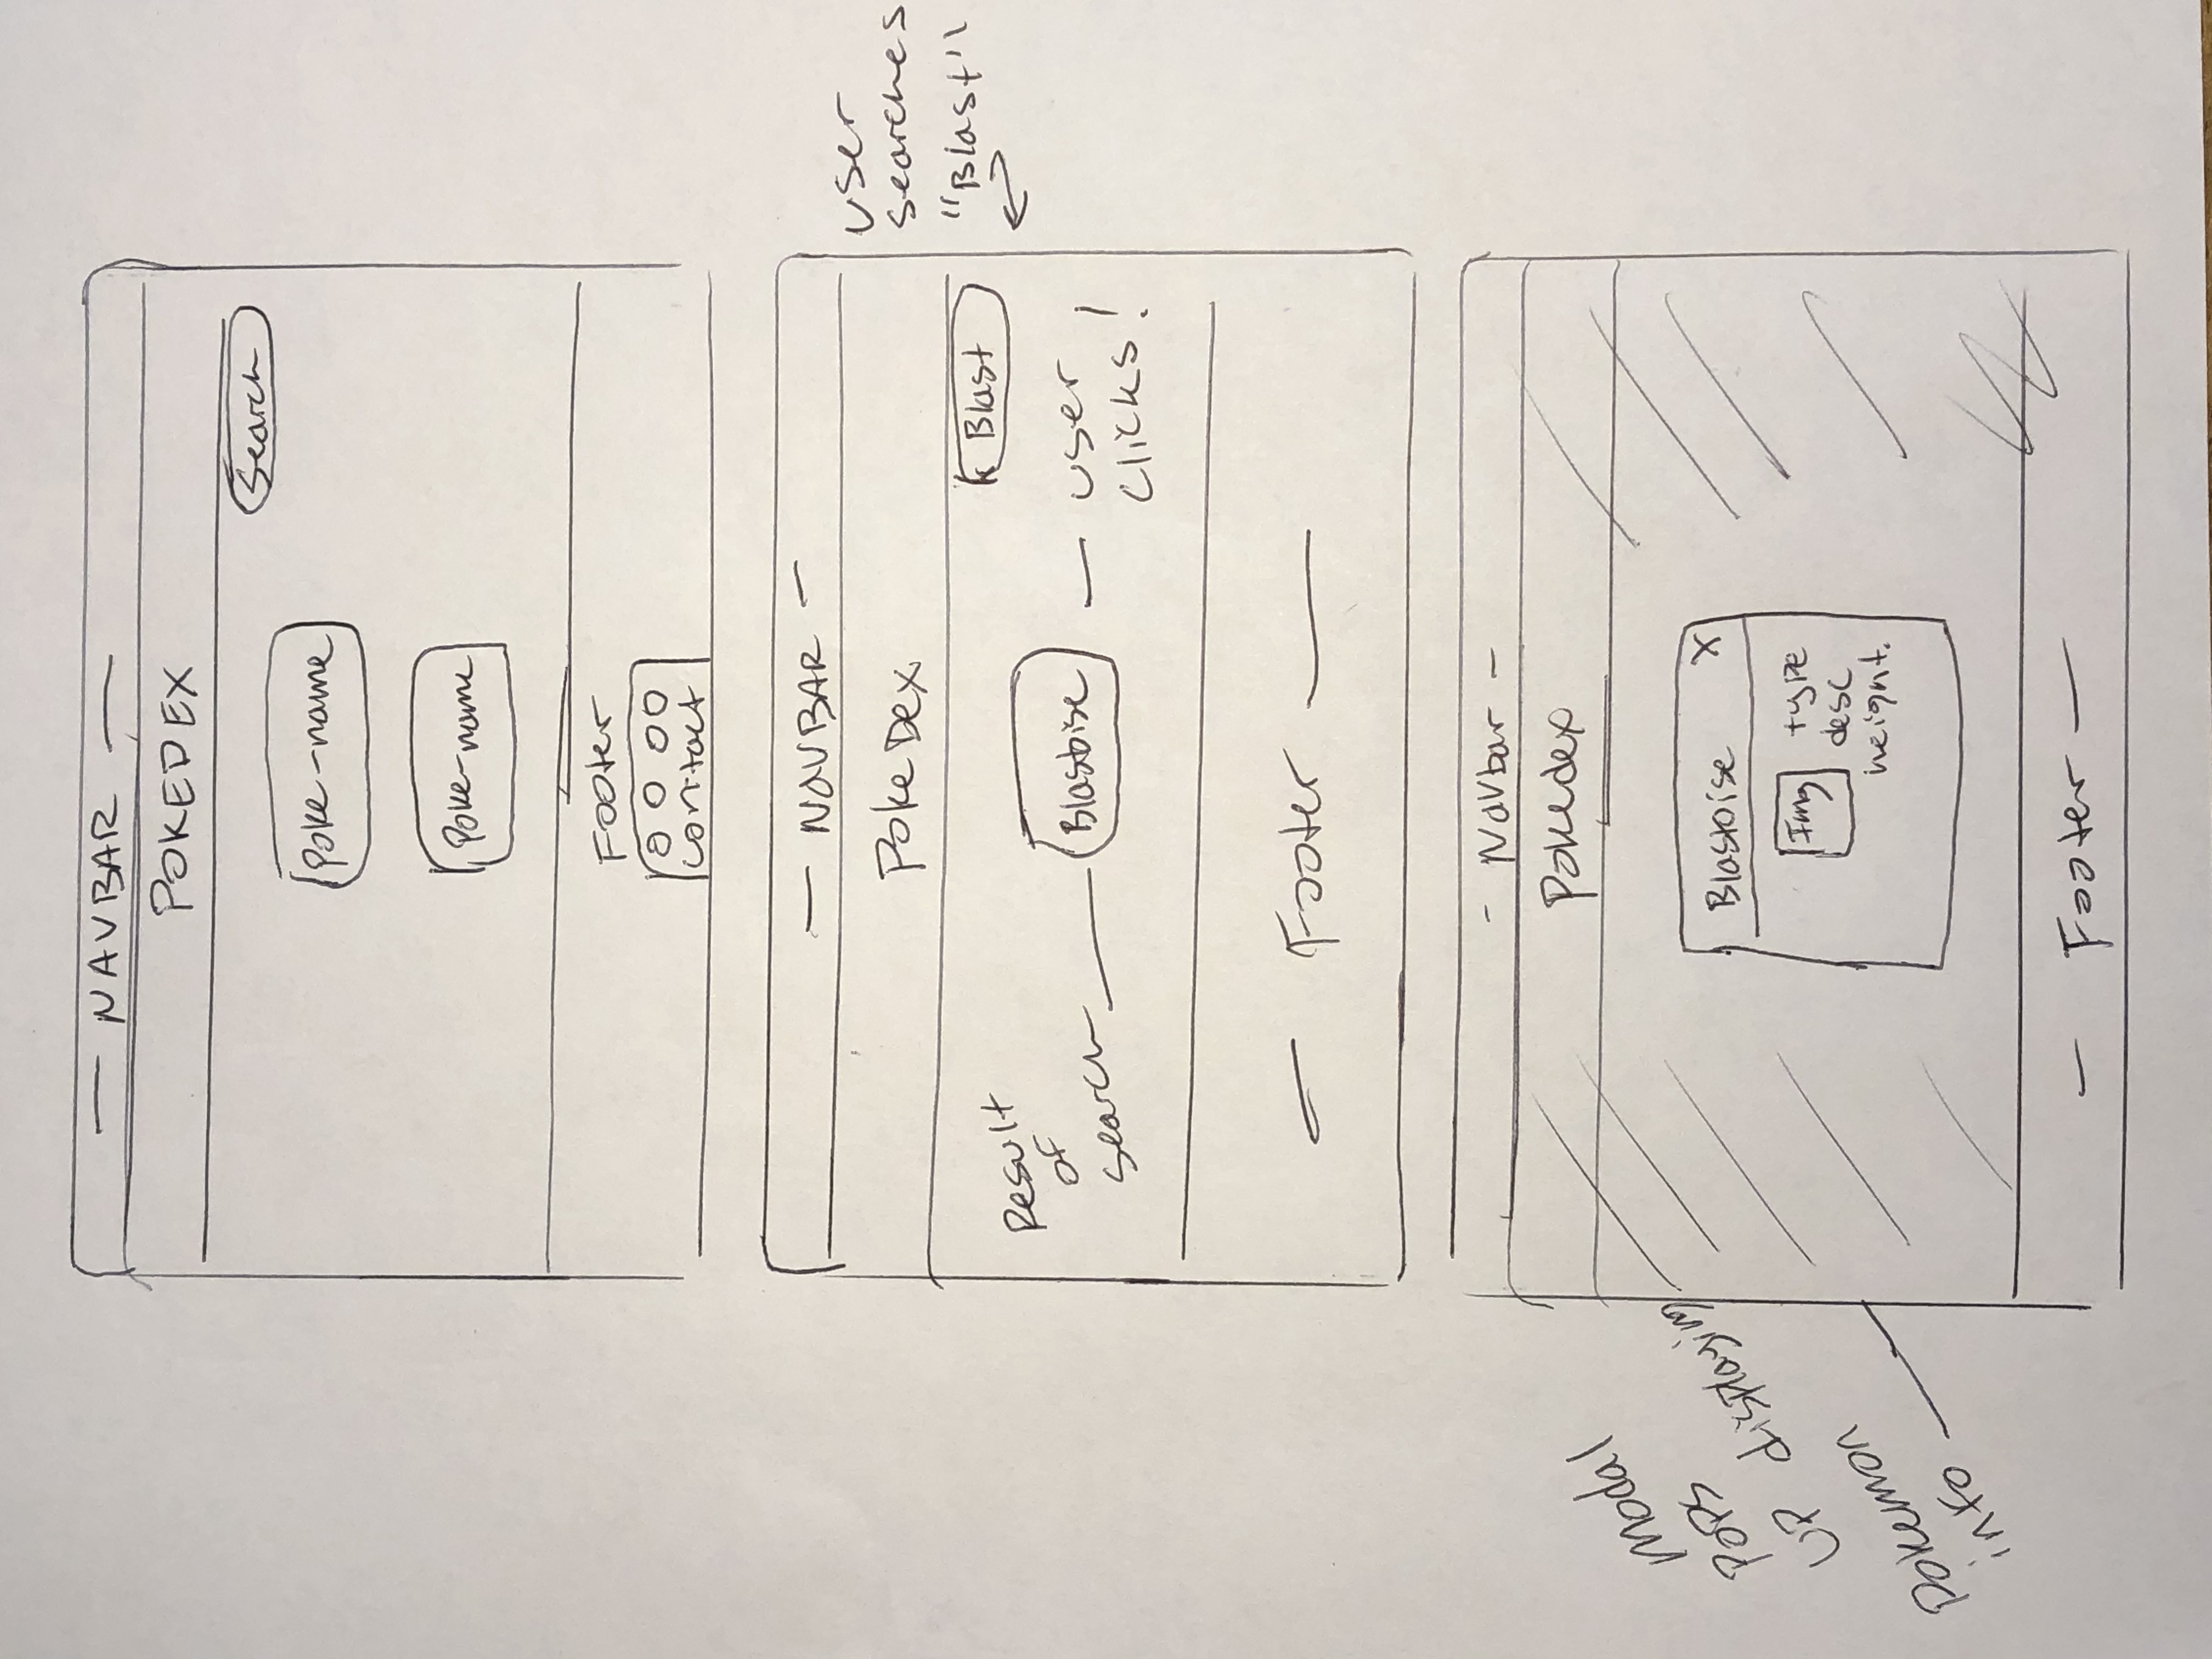 — NAVBAR —
POKEDEX
Search
Poke-name
Poke-name
Footer
contact
— NAVBAR —
PokeDex
user
searches
"Blast"
Blast
Result
of
search
Blastoise
user
clicks!
— Footer —
- Navbar -
Pokedex
modal
pops
up displaying
Pokemon
info
Blastoise X
Img
type
desc
height.
— Footer —